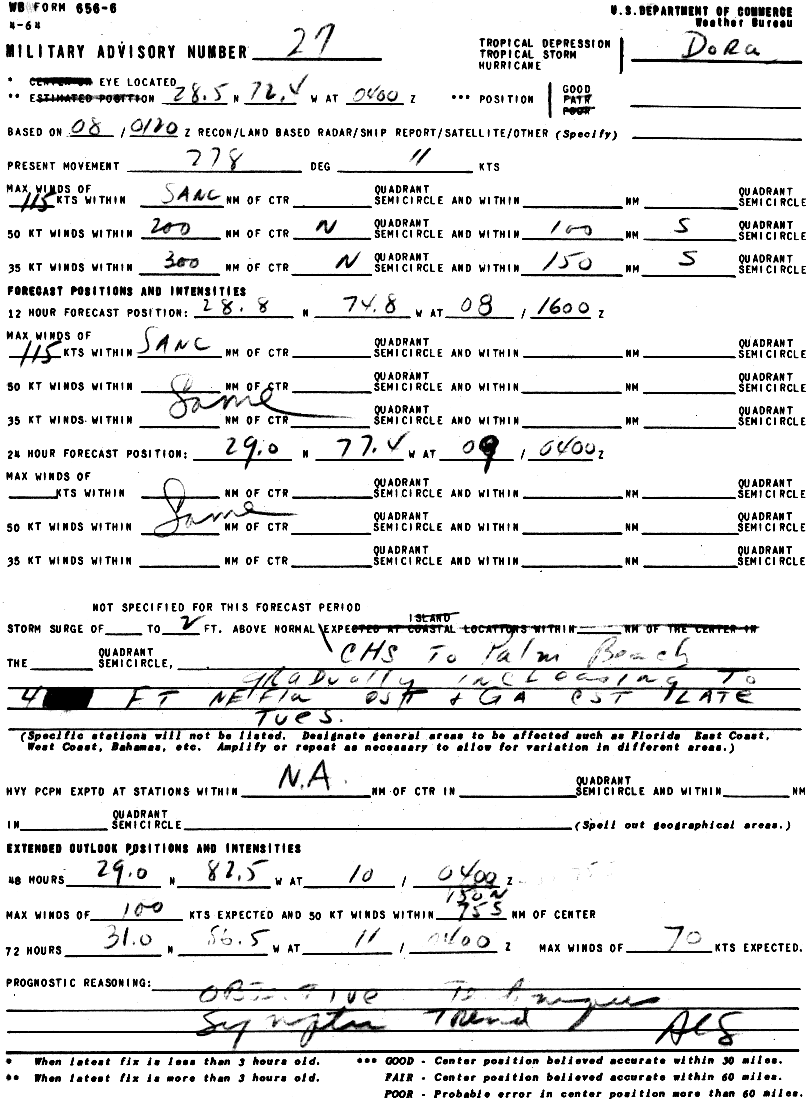 WB FORM 656-6
4-64
U.S. DEPARTMENT OF COMMERCE
Weather Bureau
MILITARY ADVISORY NUMBER 27
TROPICAL DEPRESSION
TROPICAL STORM
HURRICANE
Dora
* CENTER OR EYE LOCATED
** ESTIMATED POSITION 28.5 N 72.4 W AT 0400 Z *** POSITION GOOD
FAIR
POOR
BASED ON 08 / 0120 Z RECON/LAND BASED RADAR/SHIP REPORT/SATELLITE/OTHER (Specify)
PRESENT MOVEMENT 278 DEG 11 KTS
MAX WINDS OF
115 KTS WITHIN SANC NM OF CTR QUADRANT SEMICIRCLE AND WITHIN NM QUADRANT SEMICIRCLE
50 KT WINDS WITHIN 200 NM OF CTR N QUADRANT SEMICIRCLE AND WITHIN 100 NM S QUADRANT SEMICIRCLE
35 KT WINDS WITHIN 300 NM OF CTR N QUADRANT SEMICIRCLE AND WITHIN 150 NM S QUADRANT SEMICIRCLE
FORECAST POSITIONS AND INTENSITIES
12 HOUR FORECAST POSITION: 28.8 N 74.8 W AT 08 / 1600 Z
MAX WINDS OF
115 KTS WITHIN SANC NM OF CTR QUADRANT SEMICIRCLE AND WITHIN NM QUADRANT SEMICIRCLE
50 KT WINDS WITHIN NM OF CTR QUADRANT SEMICIRCLE AND WITHIN NM QUADRANT SEMICIRCLE
Same
35 KT WINDS WITHIN NM OF CTR QUADRANT SEMICIRCLE AND WITHIN NM QUADRANT SEMICIRCLE
24 HOUR FORECAST POSITION: 29.0 N 77.4 W AT 09 / 0400 Z
MAX WINDS OF
KTS WITHIN NM OF CTR QUADRANT SEMICIRCLE AND WITHIN NM QUADRANT SEMICIRCLE
Same
50 KT WINDS WITHIN NM OF CTR QUADRANT SEMICIRCLE AND WITHIN NM QUADRANT SEMICIRCLE
35 KT WINDS WITHIN NM OF CTR QUADRANT SEMICIRCLE AND WITHIN NM QUADRANT SEMICIRCLE
NOT SPECIFIED FOR THIS FORECAST PERIOD
ISLAND
STORM SURGE OF TO 2 FT. ABOVE NORMAL EXPECTED AT COASTAL LOCATIONS WITHIN NM OF THE CENTER IN
THE QUADRANT SEMICIRCLE, CHS To Palm Beach
gradually increasing To
4 FT NE Fla CST + GA CST LATE
Tues.
(Specific stations will not be listed. Designate general areas to be affected such as Florida East Coast,
West Coast, Bahamas, etc. Amplify or repeat as necessary to allow for variation in different areas.)
HVY PCPN EXPTD AT STATIONS WITHIN N.A. NM OF CTR IN QUADRANT SEMICIRCLE AND WITHIN NM
IN QUADRANT SEMICIRCLE (Spell out geographical areas.)
EXTENDED OUTLOOK POSITIONS AND INTENSITIES
48 HOURS 29.0 N 82.5 W AT 10 / 0400 Z
150 N
MAX WINDS OF 100 KTS EXPECTED AND 50 KT WINDS WITHIN 75 S NM OF CENTER
72 HOURS 31.0 N 86.5 W AT 11 / 0400 Z MAX WINDS OF 70 KTS EXPECTED.
PROGNOSTIC REASONING:
OBJECTIVE Techniques
Trend
* When latest fix is less than 3 hours old.
** When latest fix is more than 3 hours old.
*** GOOD - Center position believed accurate within 30 miles.
FAIR - Center position believed accurate within 60 miles.
POOR - Probable error in center position more than 60 miles.